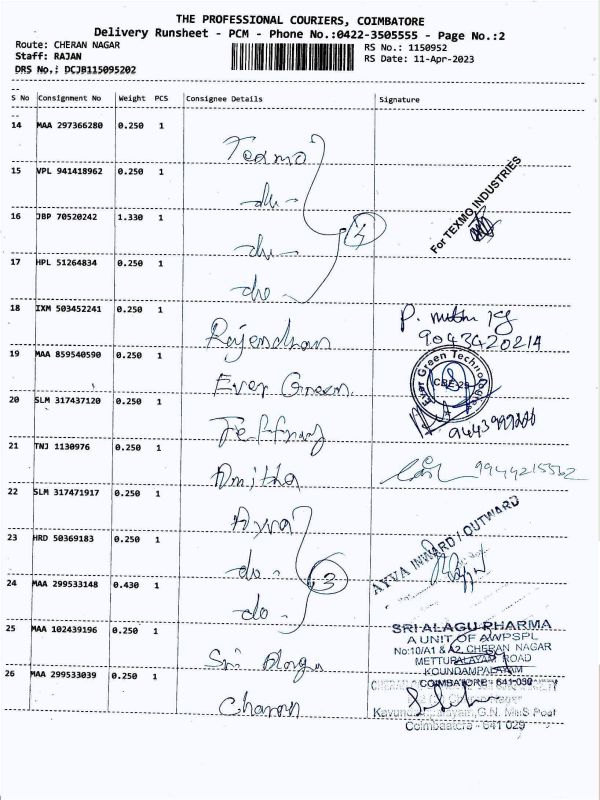 THE PROFESSIONAL COURIERS, COIMBATORE
Delivery Runsheet - PCM - Phone No.:0422-3505555 - Page No.:2
Route: CHERAN NAGAR
RS No.: 1150952
Staff: RAJAN
RS Date: 11-Apr-2023
DRS No.: DCJB115095202
S No Consignment No Weight PCS Consignee Details Signature
14 MAA 297366280 0.250 1
Texmo
15 VPL 941418962 0.250 1
do
For TEXMO INDUSTRIES
16 JBP 70520242 1.330 1
4
do
17 HPL 51264834 0.250 1
do
18 IXM 503452241 0.250 1
Rajendran
9043420214
19 MAA 859540590 0.250 1
Ever Green
Ever Green
CBE-29
20 SLM 317437120 0.250 1
21 TNJ 1130976 0.250 1
Amitha
9944215562
22 SLM 317471917 0.250 1
Ayva
AYVA INWARD / OUTWARD
23 HRD 50369183 0.250 1
do
3
24 MAA 299533148 0.430 1
do
25 MAA 102439196 0.250 1
Sri Alagu
SRI ALAGU PHARMA
A UNIT OF AWPSPL
No:10/A1 & A2, CHERAN NAGAR
METTUPALAYAM ROAD
KOUNDAMPALAYAM
COIMBATORE - 641 030
26 MAA 299533039 0.250 1
Charan
Kavundampalayam, G.N. Mills Post
Coimbatore - 641 029